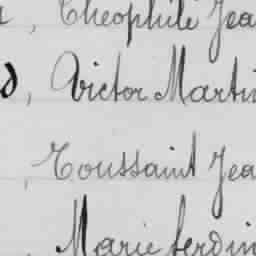 , Théophile Jea
d, Victor Marti
, Toussaint Jea
, Marie ferdin